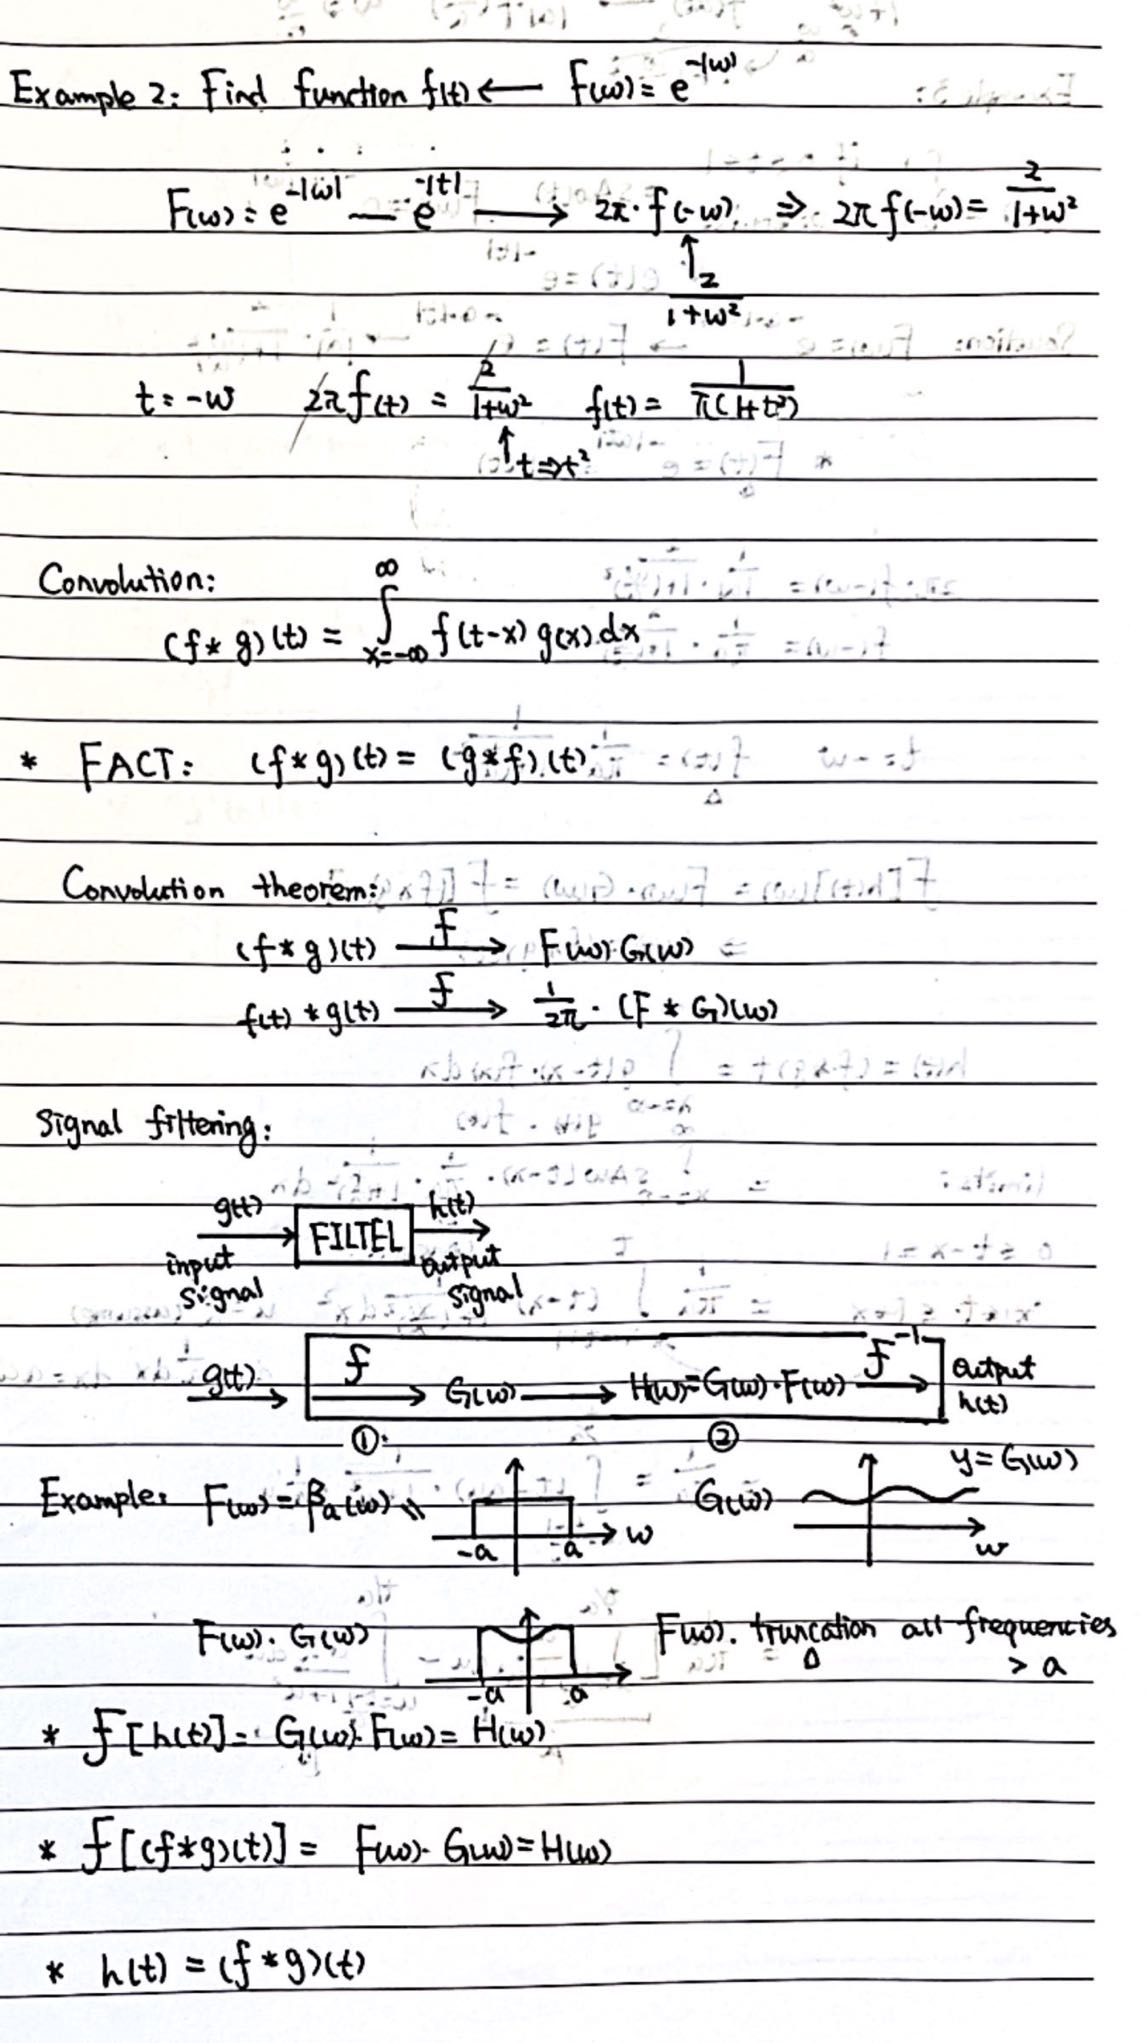 Example 2: Find function f(t) ← F(ω) = e^{-|ω|}
F(ω) = e^{-|ω|} — e^{-|t|} ⟶ 2π · f(-ω) ⇒ 2π f(-ω) = 2/(1+ω²)
↑ 2/(1+ω²)
t = -ω 2π f(t) = 2/(1+ω²) f(t) = 1/(π(1+t²))
↑ t ⇒ t²
Convolution:
(f * g)(t) = ∫_{x=-∞}^{∞} f(t-x) g(x) dx
* FACT: (f * g)(t) = (g * f)(t)
Convolution theorem:
(f * g)(t) —f→ F(ω) · G(ω)
f(t) * g(t) —f→ 1/2π · (F * G)(ω)
Signal filtering:
g(t) FILTEL h(t)
input signal output signal
g(t) f → G(ω) → H(ω) = G(ω) · F(ω) f^{-1} → output h(t)
① ②
Example: F(ω) = β_a(ω) -a a ω G(ω) y = G(ω) ω
F(ω) · G(ω) -a a F(ω). truncation all frequencies > a
* f[h(t)] = G(ω) · F(ω) = H(ω)
* f[(f * g)(t)] = F(ω) · G(ω) = H(ω)
* h(t) = (f * g)(t)